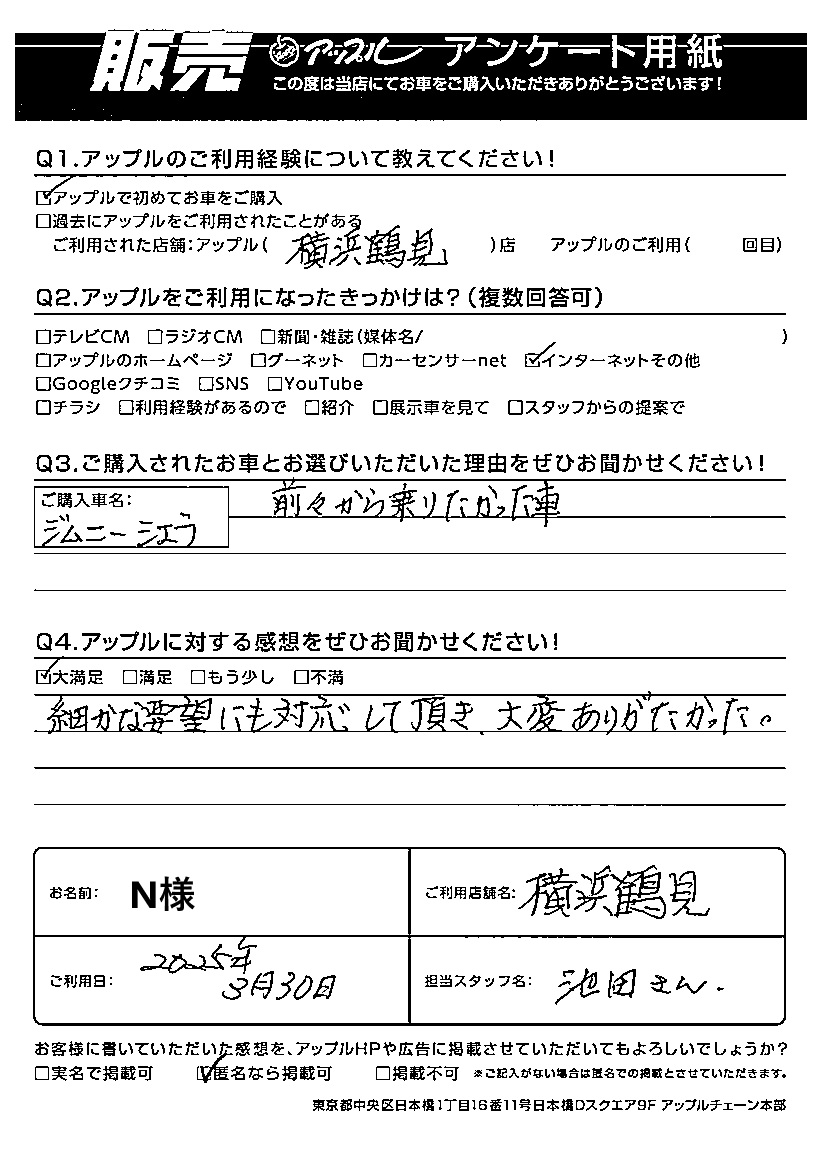 販売 アップル アンケート用紙
この度は当店にてお車をご購入いただきありがとうございます!
Q1.アップルのご利用経験について教えてください!
☑アップルで初めてお車をご購入
□過去にアップルをご利用されたことがある
ご利用された店舗:アップル( 横浜鶴見 )店 アップルのご利用( 回目)
Q2.アップルをご利用になったきっかけは?(複数回答可)
□テレビCM □ラジオCM □新聞・雑誌(媒体名/ )
□アップルのホームページ □グーネット □カーセンサーnet ☑インターネットその他
□Googleクチコミ □SNS □YouTube
□チラシ □利用経験があるので □紹介 □展示車を見て □スタッフからの提案で
Q3.ご購入されたお車とお選びいただいた理由をぜひお聞かせください!
ご購入車名:
ジムニーシエラ
前々から乗りたかった車
Q4.アップルに対する感想をぜひお聞かせください!
☑大満足 □満足 □もう少し □不満
細かな要望にも対応して頂き、大変ありがたかった。
お名前: N様
ご利用店舗名: 横浜鶴見
ご利用日: 2025年
3月30日
担当スタッフ名: 池田さん.
お客様に書いていただいた感想を、アップルHPや広告に掲載させていただいてもよろしいでしょうか?
□実名で掲載可 ☑匿名なら掲載可 □掲載不可 ※ご記入がない場合は匿名での掲載とさせていただきます。
東京都中央区日本橋1丁目16番11号日本橋Dスクエア9F アップルチェーン本部